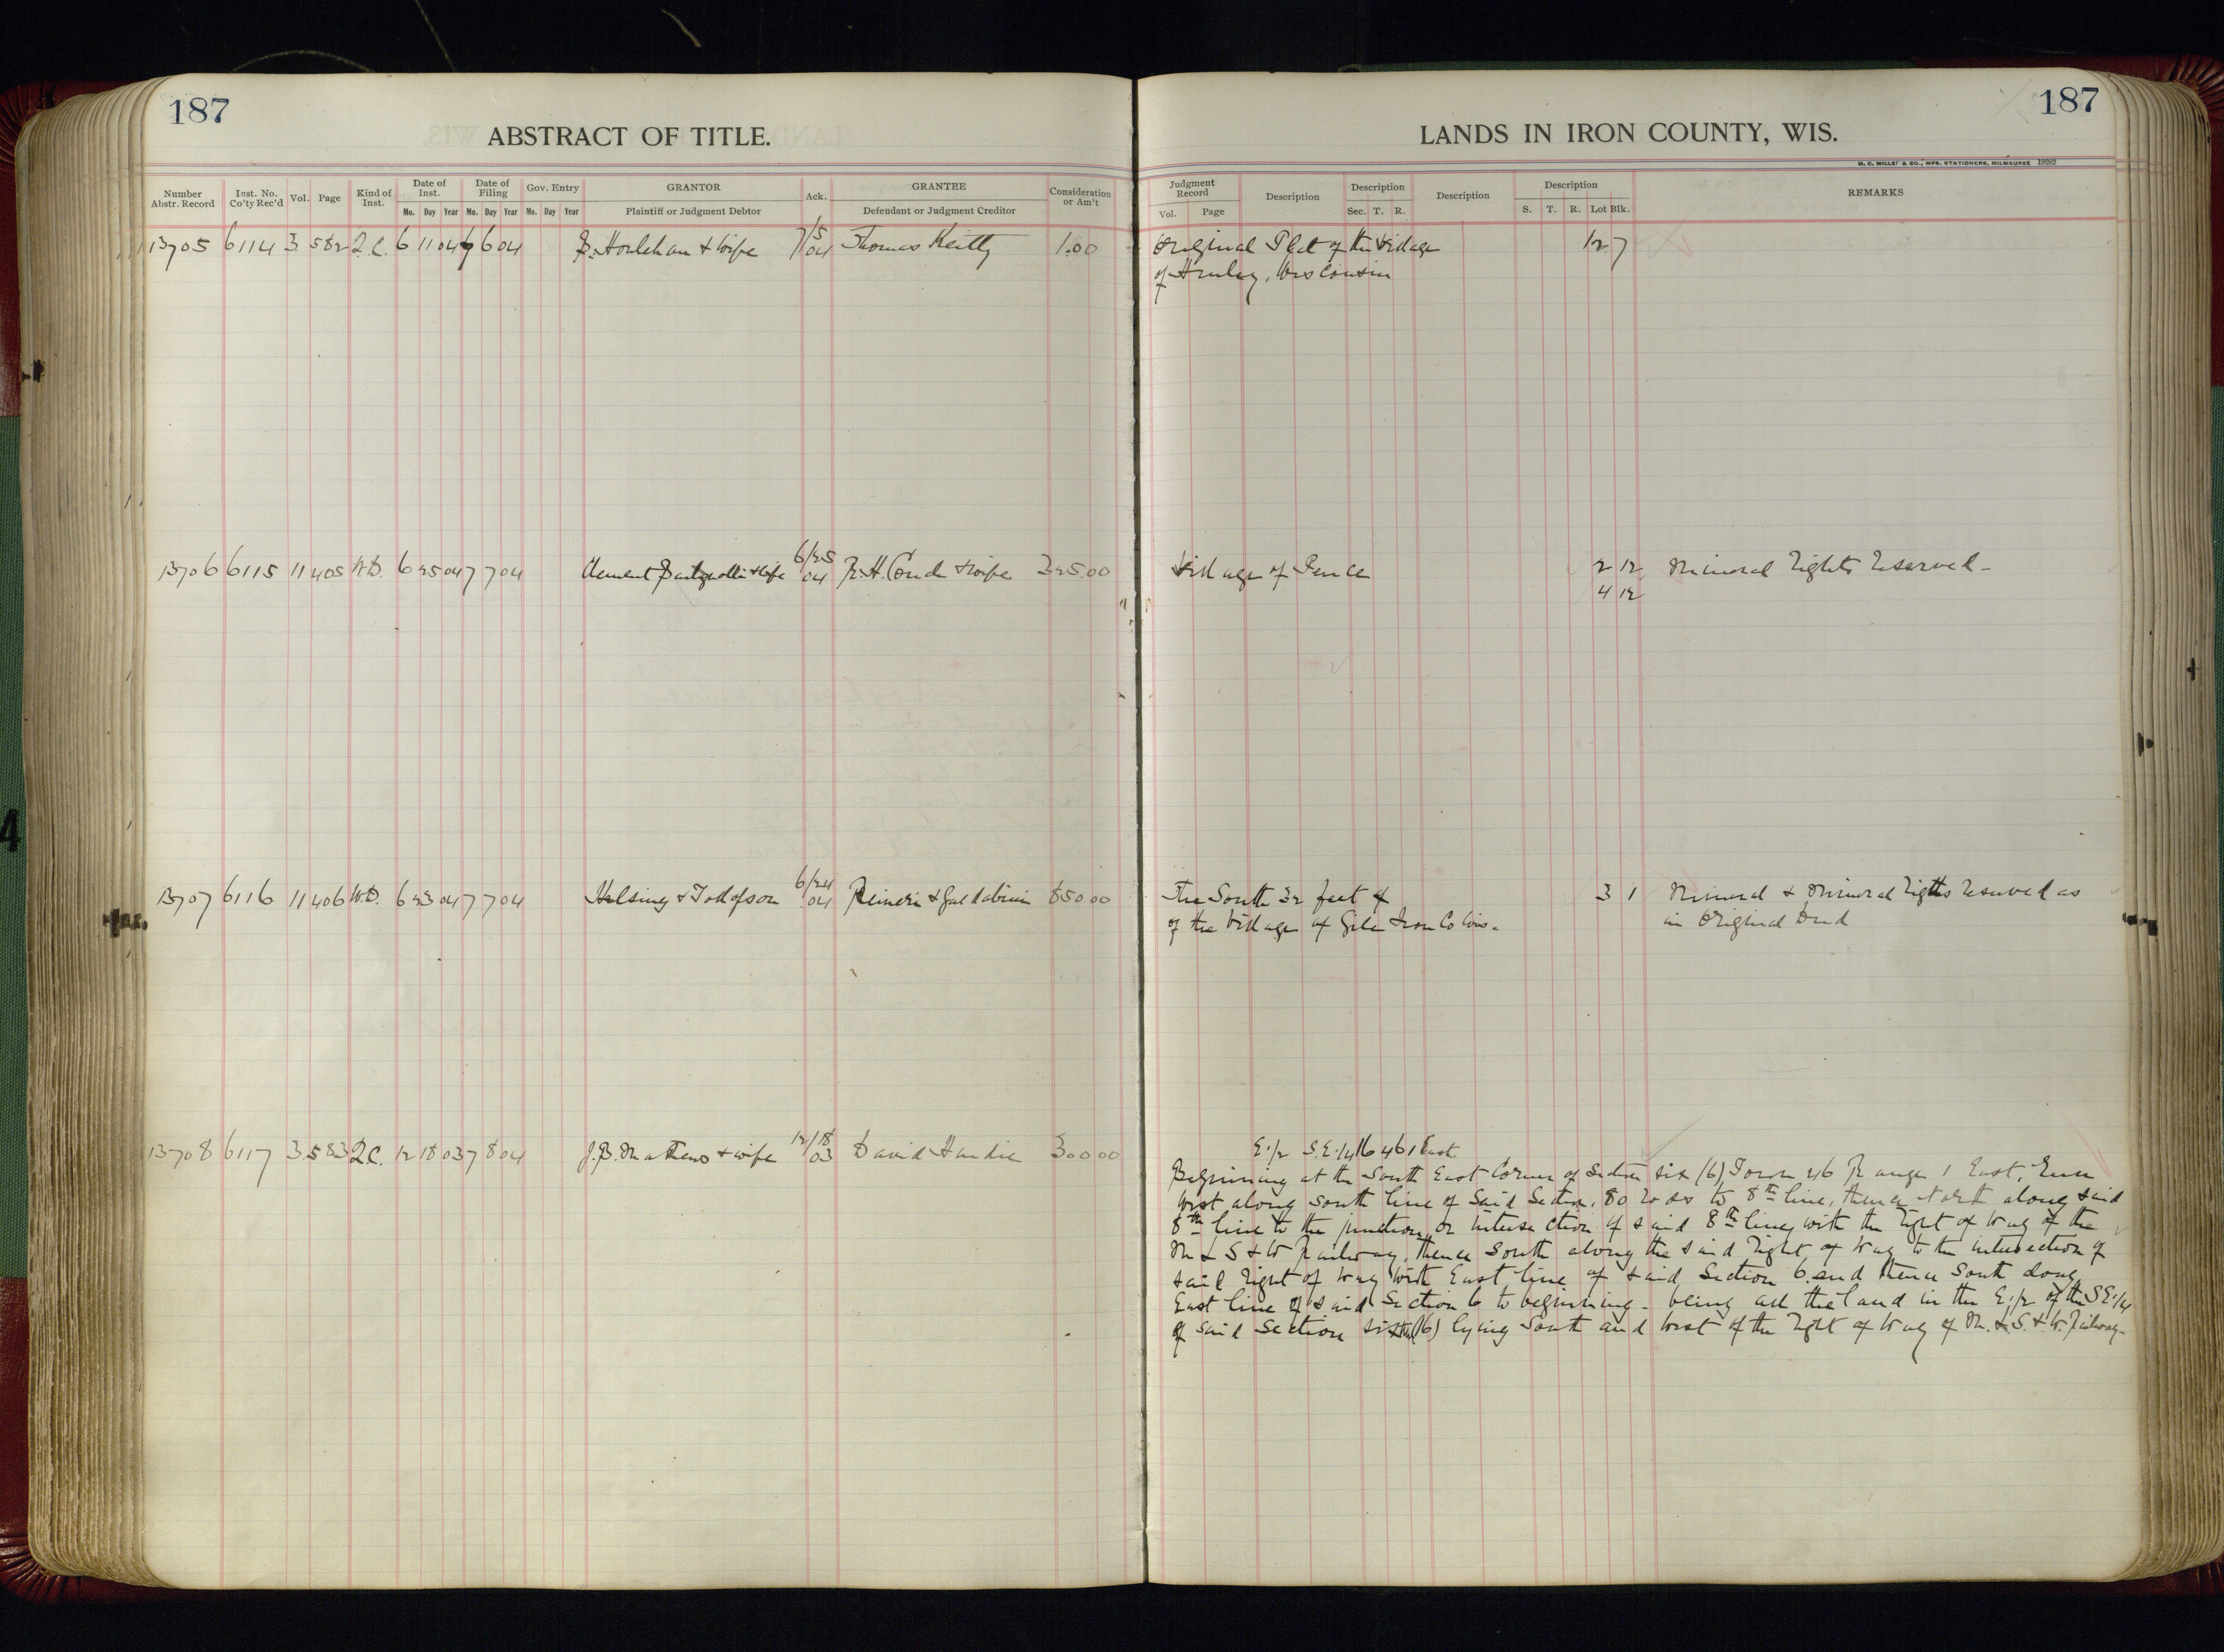 187
ABSTRACT OF TITLE.
Number Abstr. Record
Inst. No. Co'ty Rec'd
Vol.
Page
Kind of Inst.
Date of Inst.
Date of Filing
Gov. Entry
GRANTOR
Ack.
GRANTEE
Consideration or Am't
Mo. Day Year Mo. Day Year Mo. Day Year
Plaintiff or Judgment Debtor
Defendant or Judgment Creditor
13705 6114 3 582 Q.C. 6 11 04 7 6 04 & wife 7/5 04 Thomas 1.00
13706 6115 11 405 W.D. 6 25 04 7 7 04 Clement & wife 6/25 04 R.H. & wife 325.00
13707 6116 11 406 W.D. 6 23 04 7 7 04 Helsing & 6/24 04 & 850 00
13708 6117 3 583 Q.C. 12 18 03 7 8 04 J.B. Mathews & wife 12/18 03 David Hardie 300 00
187
LANDS IN IRON COUNTY, WIS.
H. C. MILLER & CO., MFG. STATIONERS, MILWAUKEE 19282
Judgment Record
Description
Description
Description
Description
REMARKS
Vol. Page
Sec. T. R.
S. T. R. Lot Blk.
Original Plat of the Village 12 7
of Hurley, Wisconsin
Village of Pence 2 12 Mineral Rights Reserved -
4 12
The South 32 feet of 3 1 Mineral & Mineral Rights Reserved as
of the Village of Gile Iron Co Wis. in Original Deed
E.1/2 S.E.1/4 6 46 1 East
Beginning at the South East Corner of Section six (6) Town 46 Range 1 East, Run
West along South line of Said Section, 80 rods to 8th line, thence North along said
8th line to the junction or intersection of said 8th line with the Right of Way of the
M L S & W Railway, thence South along the said Right of Way to the intersection of
said Right of Way with East line of said Section 6 and thence South along
East line of said Section 6 to beginning - being all the land in the E.1/2 of the S.E.1/4
of said Section six (6) lying South and West of the Right of Way of M. L. S. & W. Railway-